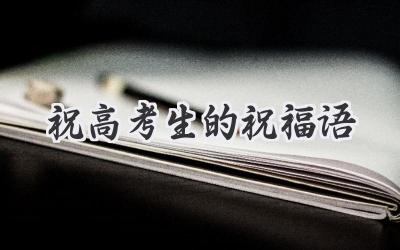 祝高考生的祝福语